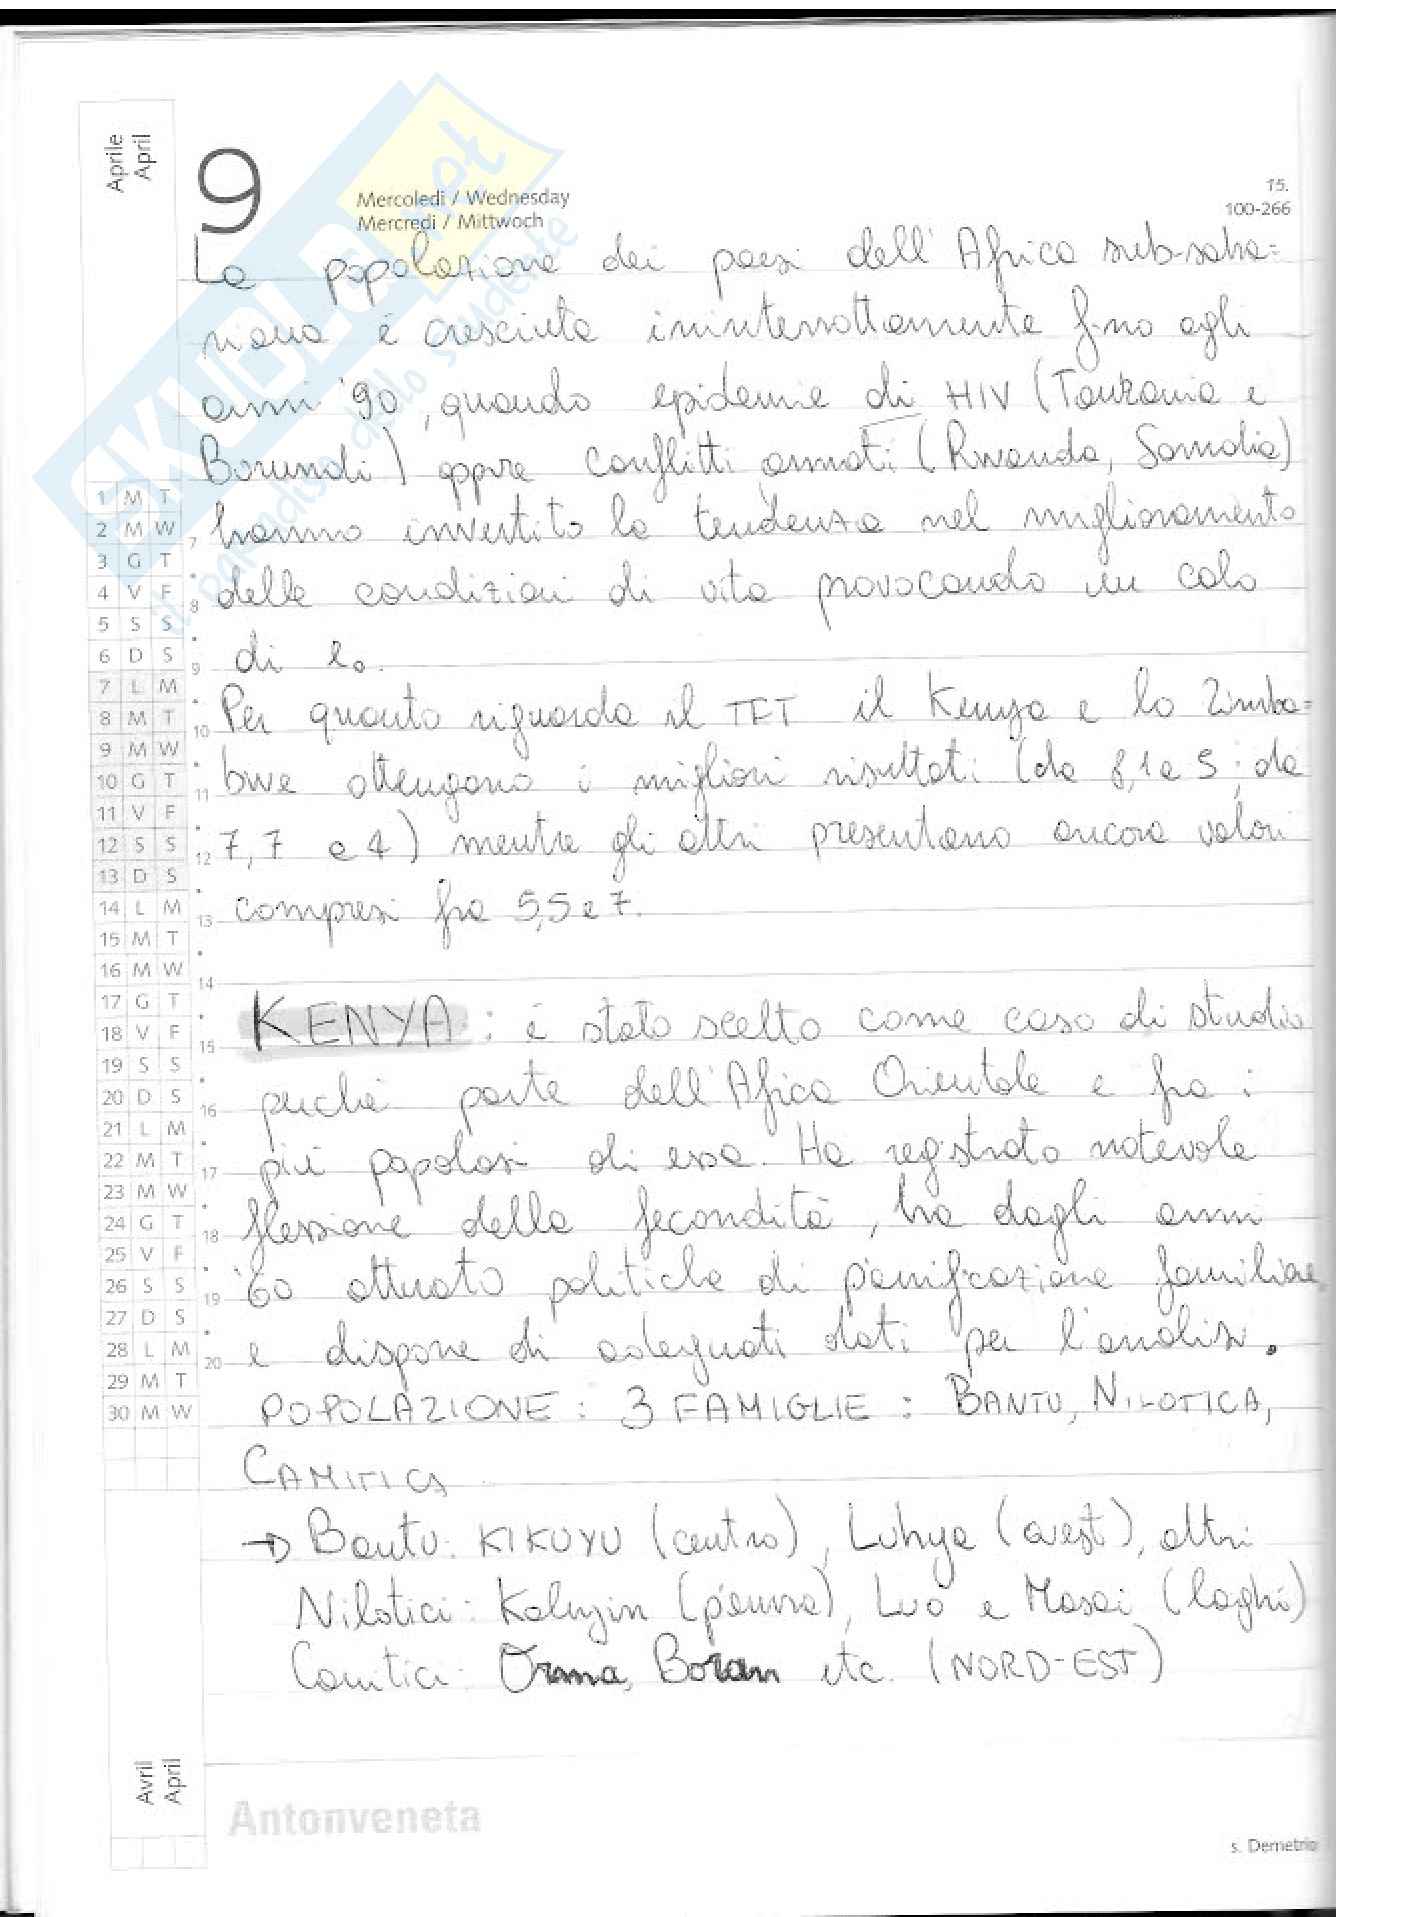 Aprile
April
9
Mercoledì / Wednesday
Mercredi / Mittwoch
15.
100-266
SKUOLA.net
il paradiso dello studente
La popolazione dei paesi dell'Africa sub-saha=
riana è cresciuta ininterrottamente fino agli
anni '90, quando epidemie di HIV (Tanzania e
Borundi) oppure conflitti armati (Rwanda, Somalia)
hanno invertito la tendenza nel miglioramento
delle condizioni di vita provocando un calo
di e₀.
Per quanto riguarda il TFT il Kenya e lo Zimba=
bwe ottengono i migliori risultati (da 8,1 a 5; da
7,7 a 4) mentre gli altri presentano ancora valori
compresi fra 5,5 e 7.
KENYA: è stato scelto come caso di studio
perché parte dell'Africa Orientale e fra i
più popolosi di essa. Ha registrato notevole
flessione della fecondità, ha dagli anni
'60 attuato politiche di pianificazione familiare
e dispone di adeguati dati per l'analisi.
POPOLAZIONE: 3 FAMIGLIE: BANTU, NILOTICA,
CAMITICA
→ Bantu: KIKUYU (centro), Luhya (ovest), altri
Nilotici: Kalnjin (pianura), Luo e Masai (laghi)
Camitici: Orma, Boran etc. (NORD-EST)
1 M T
2 M W
3 G T
4 V F
5 S S
6 D S
7 L M
8 M T
9 M W
10 G T
11 V F
12 S S
13 D S
14 L M
15 M T
16 M W
17 G T
18 V F
19 S S
20 D S
21 L M
22 M T
23 M W
24 G T
25 V F
26 S S
27 D S
28 L M
29 M T
30 M W
7
8
9
10
11
12
13
14
15
16
17
18
19
20
Avril
April
Antonveneta
s. Demetrio